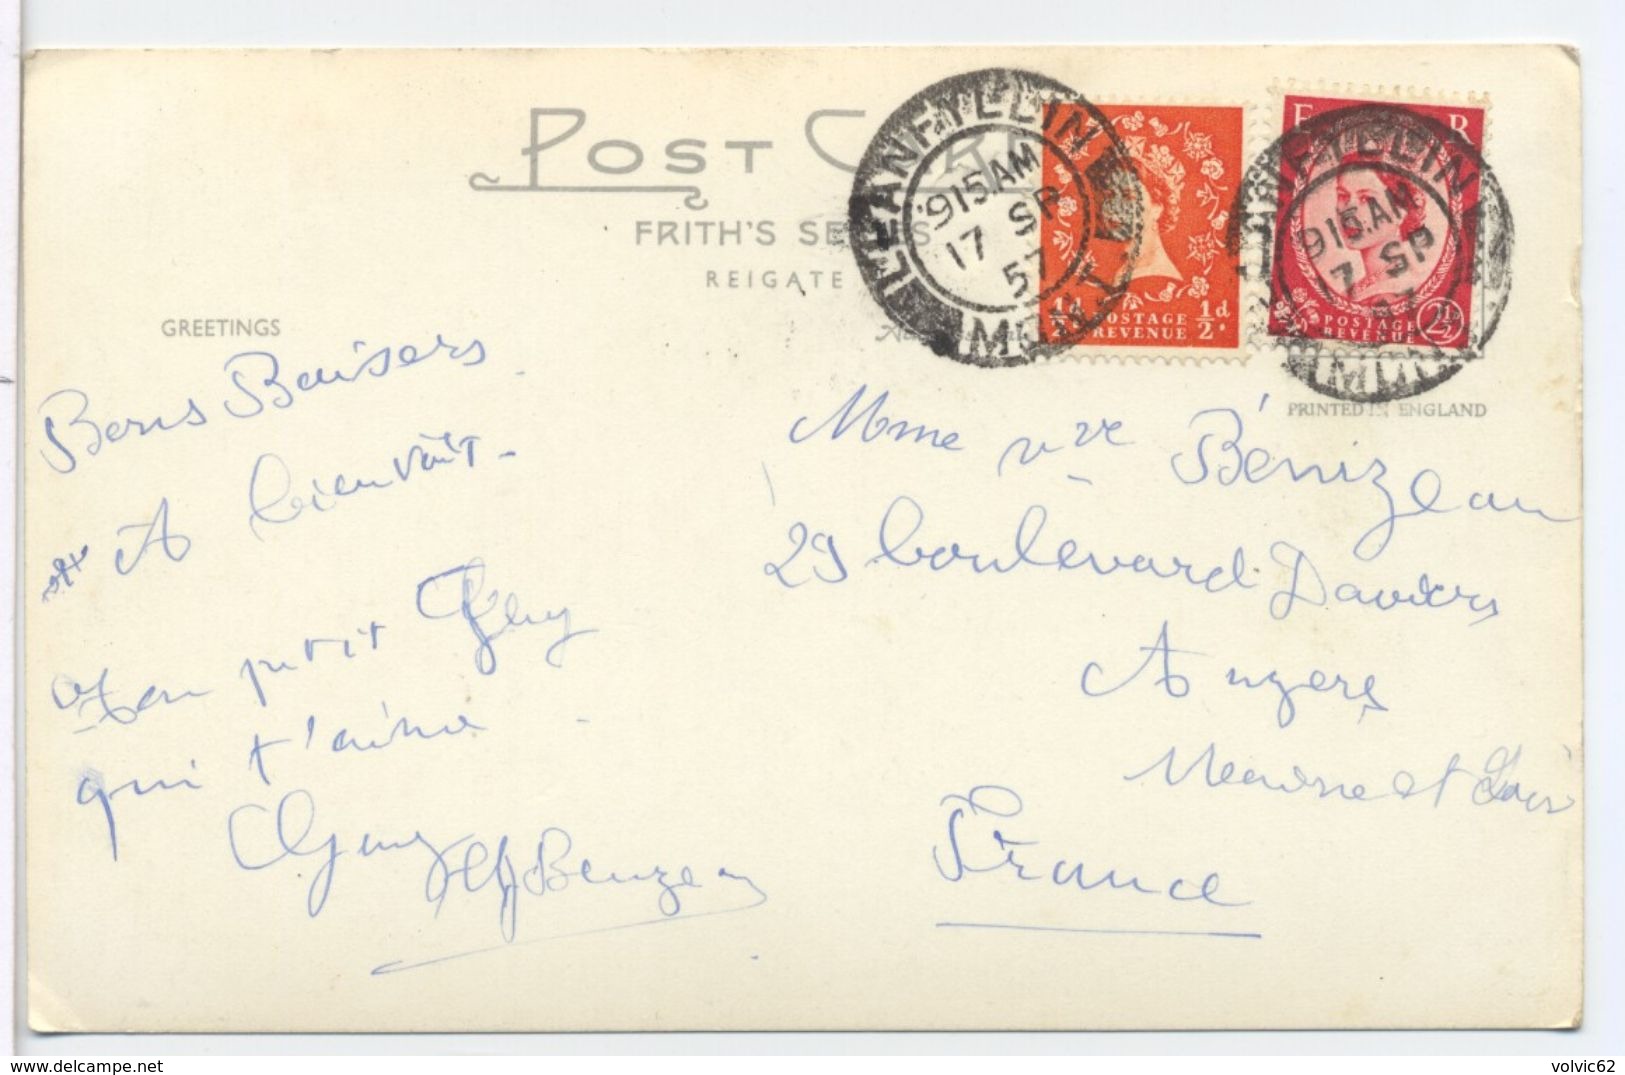 POST CARD
FRITH'S SERIES
REIGATE
GREETINGS
LLANFYLLIN
9 15 AM
17 SP
57
MONT
½d POSTAGE REVENUE ½d
E R
POSTAGE REVENUE 2½
LLANFYLLIN
9 15 AM
SP
PRINTED IN ENGLAND
Bons Baisers
A bientôt -
ton petit Guy
qui t'aime
Guy
Mme vve Bénizeau
29 boulevard Daviers
Angers
Maine et Loire
France
volvic62